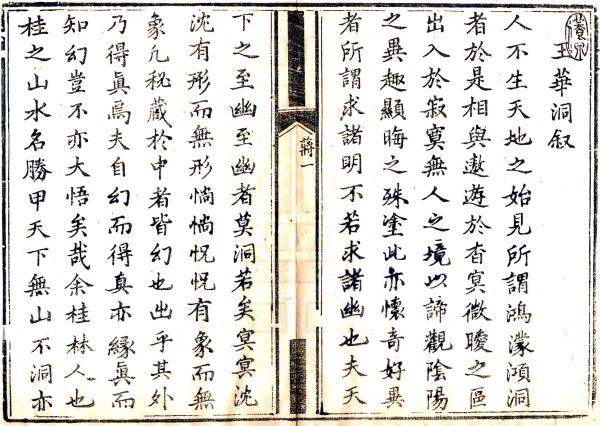 玉華洞叙
人不生天地之始見所謂鴻濛澒洞
者於是相與遨遊於杳冥微曖之區
出入於寂寞無人之境以諦觀陰陽
之異趣顯晦之殊塗此亦懷奇好異
者所謂求諸明不若求諸幽也夫天
蔣一
下之至幽至幽者莫洞若矣冥冥沈
沈有形而無形惝惝怳怳有象而無
象凡秘藏於中者皆幻也出乎其外
乃得真焉夫自幻而得真亦緣真而
知幻豈不亦大悟矣哉余桂林人也
桂之山水名勝甲天下無山不洞亦